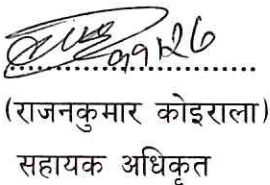 (राजनकुमार कोइराला)
सहायक अधिकृत